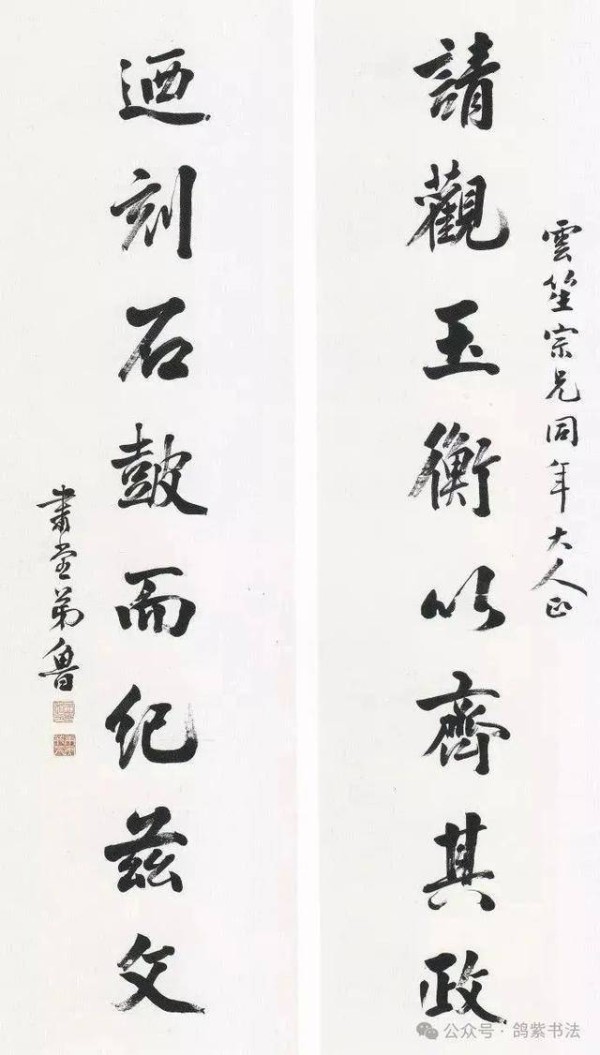 雲笙宗兄同年大人正
請觀玉衡以齊其政
迺刻石鼓而紀兹文
書堂弟魯
公众号·鸽紫书法